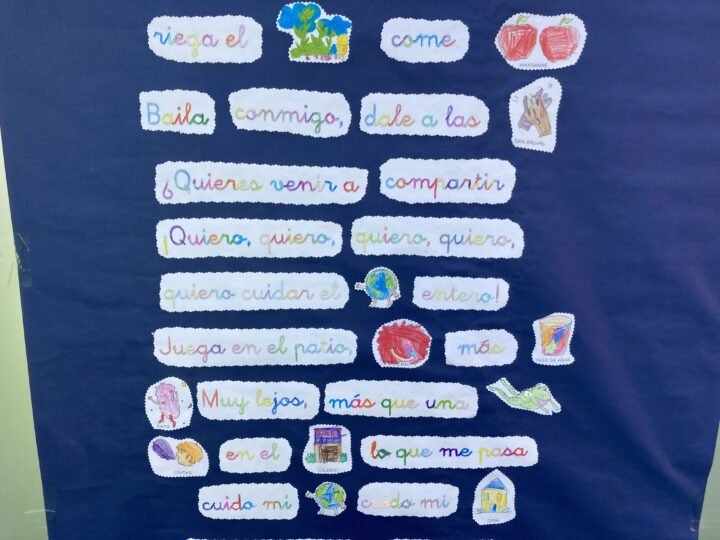 riega el come
MANZANAS
Baila conmigo, dale a las
DAR PALMAS
¿Quieres venir a compartir
¡Quiero, quiero, quiero, quiero,
quiero cuidar el entero!
Juega en el patio, más
VASO DE AGUA
Muy lejos, más que una
en el lo que me pasa
CONTAR COLEGIO
cuido mi cuido mi
CASA